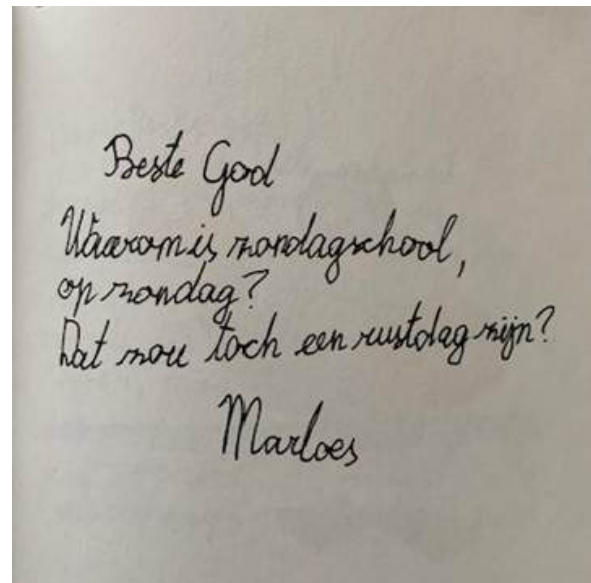 Beste God
Waarom is zondagschool,
op zondag?
Dat zou toch een rustdag zijn?
Marloes